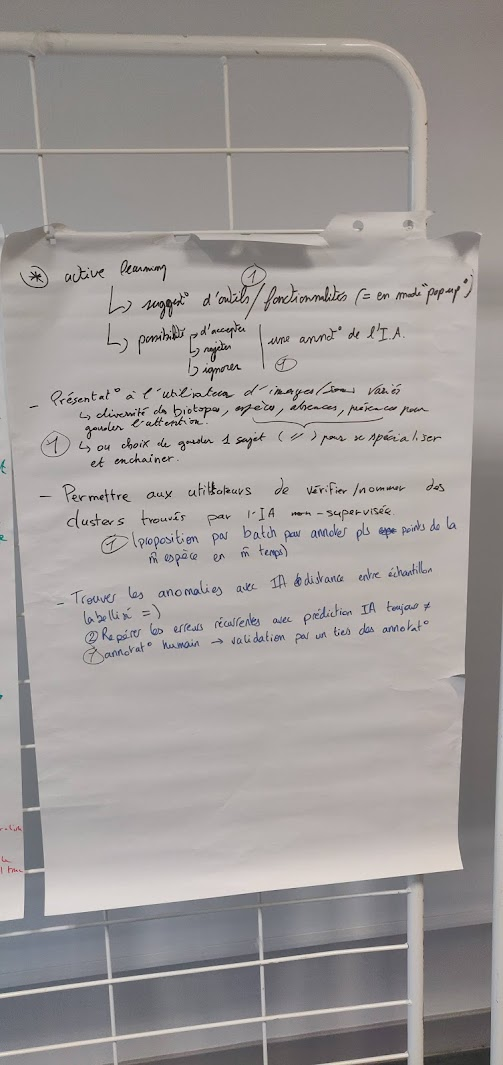 * active learning
①
↳ suggest° d'outils/fonctionnalités (= en mode "pop-up")
↳ possibilité d'accepter
rejeter
ignorer
une annot° de l'I.A.
①
- Présentat° à l'utilisateur d'images/ variés
↳ diversité des biotopes, espèces, absences, présences pour
garder l'attention.
① ↳ ou choix de garder 1 sujet ( // ) pour se spécialiser
et enchaîner.
- Permettre aux utilisateurs de vérifier/nommer des
clusters trouvés par l'IA non-supervisée.
① (proposition par batch par annoter pls points de la
m̂ espèce en m̂ temps)
- Trouver les anomalies avec IA distance entre échantillon
labellisé =)
② Repérer les erreurs récurrentes avec prédiction IA toujours ≠
① annotat° humain → validation par un tiers des annotat°